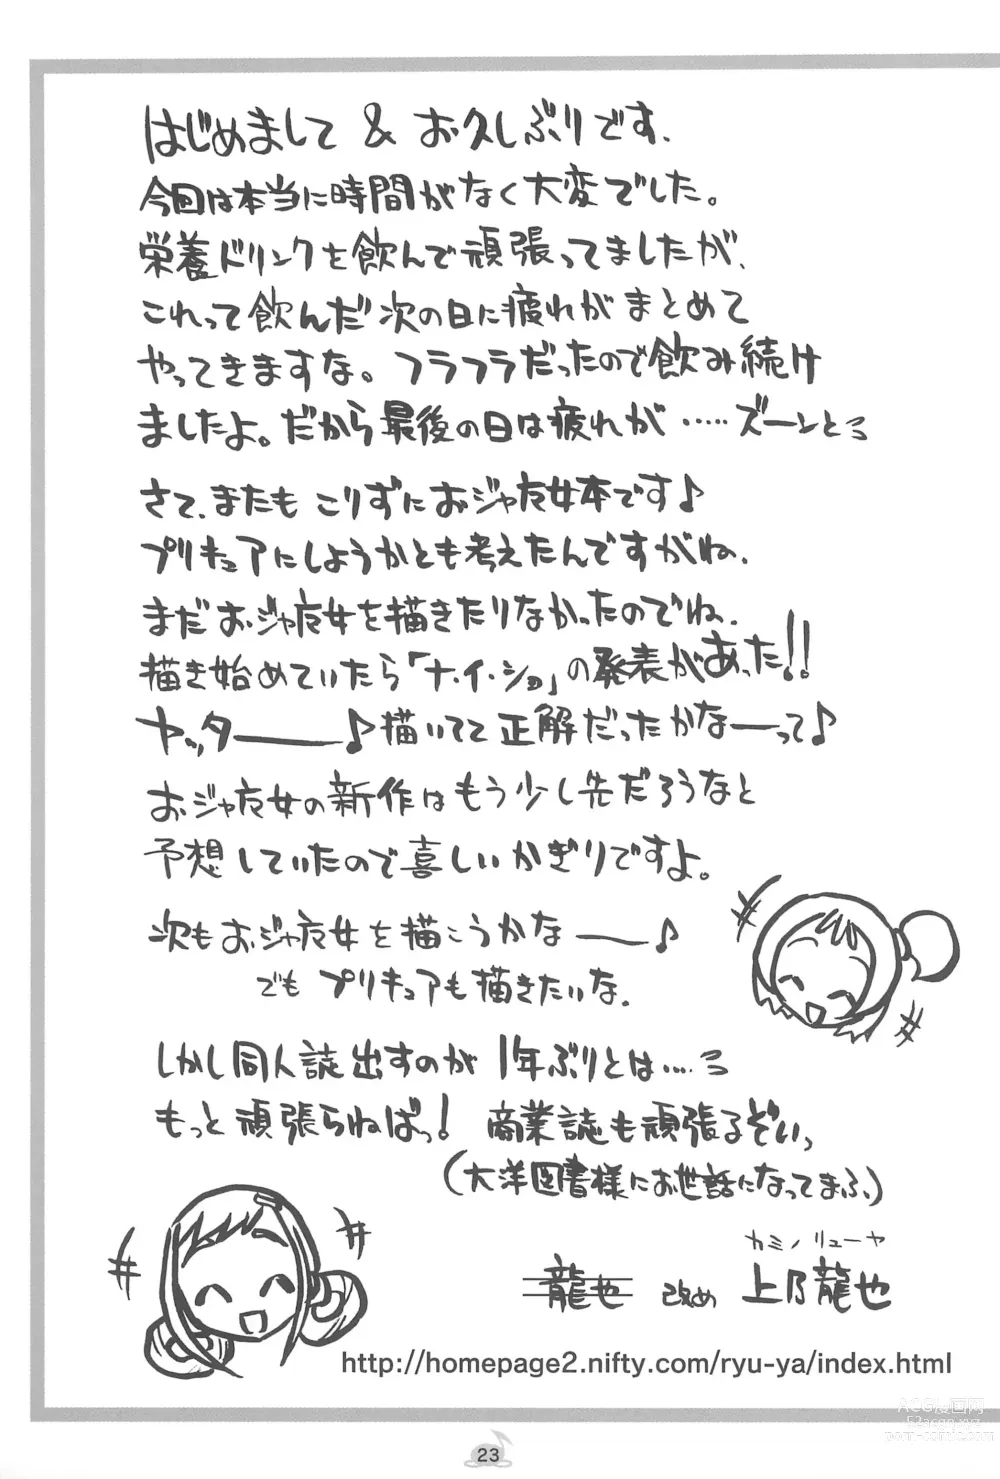 はじめまして & お久しぶりです、
今回は本当に時間がなく大変でした。
栄養ドリンクを飲んで頑張ってましたが、
これって飲んだ次の日に疲れがまとめて
やってきますな。フラフラだったので飲み続け
ましたよ。だから最後の日は疲れが・・・・・ズーンと
さて、またも こりずにおジャ魔女本です♪
プリキュアにしようかとも考えたんですがね、
まだおジャ魔女を描きたりなかったのでね、
描き始めていたら「ナ・イ・ショ」の発表があった!!
ヤッター――♪描いてて正解だったかな―って♪
おジャ魔女の新作はもう少し先だろうなと
予想していたので喜しいかぎりですよ。
次もおジャ魔女を描こうかな――♪
でも プリキュアも描きたいな、
しかし同人誌出すのが 1年ぶりとは‥‥
もっと頑張らねばっ! 商業誌も頑張るぞいっ
(大洋図書様にお世話になってまふ、)
カミノリューヤ
龍也 改め 上乃龍也
http://homepage2.nifty.com/ryu-ya/index.html
23
ACG漫画网
52acgg.xyz
porn-comic.com